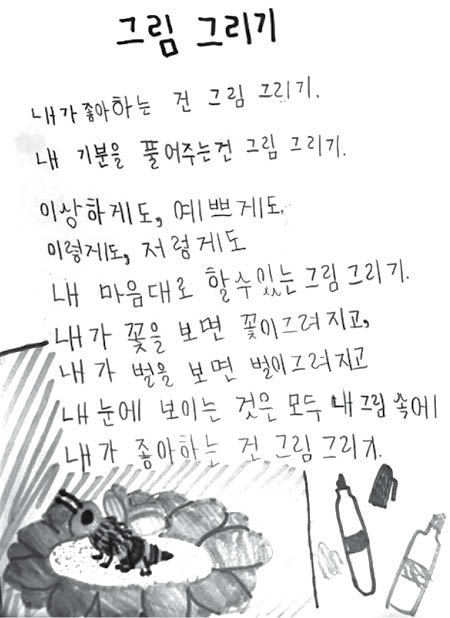 그림 그리기
내가 좋아하는 건 그림 그리기.
내 기분을 풀어주는건 그림 그리기.
이상하게도, 예쁘게도,
이렇게도, 저렇게도
내 마음대로 할수있는 그림 그리기.
내가 꽃을 보면 꽃이그려지고,
내가 벌을 보면 벌이그려지고
내 눈에 보이는 것은 모두 내 그림 속에
내가 좋아하는 건 그림 그리기.